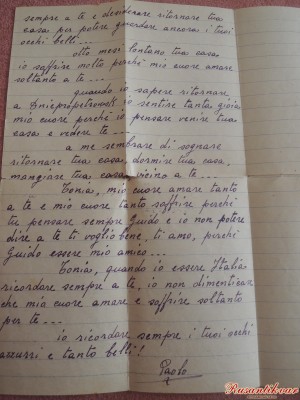 sempre a te e desiderare ritornare tua
casa per potere guardare ancora i tuoi
occhi belli...
otto mesi lontano tua casa
io soffrire molto perché mio cuore amare
soltanto a te...
quando io sapere ritornare
a Dniepropetrowsk io sentire tanta gioia
mio cuore perché io pensare venire tua
casa e vedere te...
a me sembrare di sognare
ritornare tua casa, dormire tua casa,
mangiare tua casa vicino a te...
Tonia, mio cuore amare tanto
a te e mio cuore tanto soffrire perché
tu pensare sempre Guido e io non potere
dire a te ti voglio bene, ti amo, perché
Guido essere mio amico...
Tonia, quando io essere Italia
ricordare sempre a te, io non dimenticare
che mio cuore amare e soffrire soltanto
per te...
io ricordare sempre i tuoi occhi
azzurri e tanto belli!
Paolo
Rusantikvar